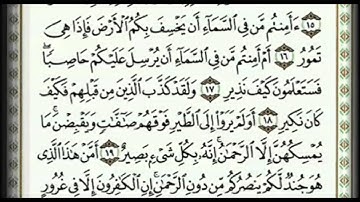 ١٥ ءَأَمِنتُم مَّن فِي السَّمَاءِ أَن يَخْسِفَ بِكُمُ الْأَرْضَ فَإِذَا هِيَ
تَمُورُ ١٦ أَمْ أَمِنتُم مَّن فِي السَّمَاءِ أَن يُرْسِلَ عَلَيْكُمْ حَاصِبًا
فَسَتَعْلَمُونَ كَيْفَ نَذِيرِ ١٧ وَلَقَدْ كَذَّبَ الَّذِينَ مِن قَبْلِهِمْ فَكَيْفَ
كَانَ نَكِيرِ ١٨ أَوَلَمْ يَرَوْا إِلَى الطَّيْرِ فَوْقَهُمْ صَافَّاتٍ وَيَقْبِضْنَ مَا
يُمْسِكُهُنَّ إِلَّا الرَّحْمَٰنُ إِنَّهُ بِكُلِّ شَيْءٍ بَصِيرٌ ١٩ أَمَّنْ هَٰذَا الَّذِي
هُوَ جُندٌ لَّكُمْ يَنصُرُكُم مِّن دُونِ الرَّحْمَٰنِ إِنِ الْكَافِرُونَ إِلَّا فِي غُرُورٍ